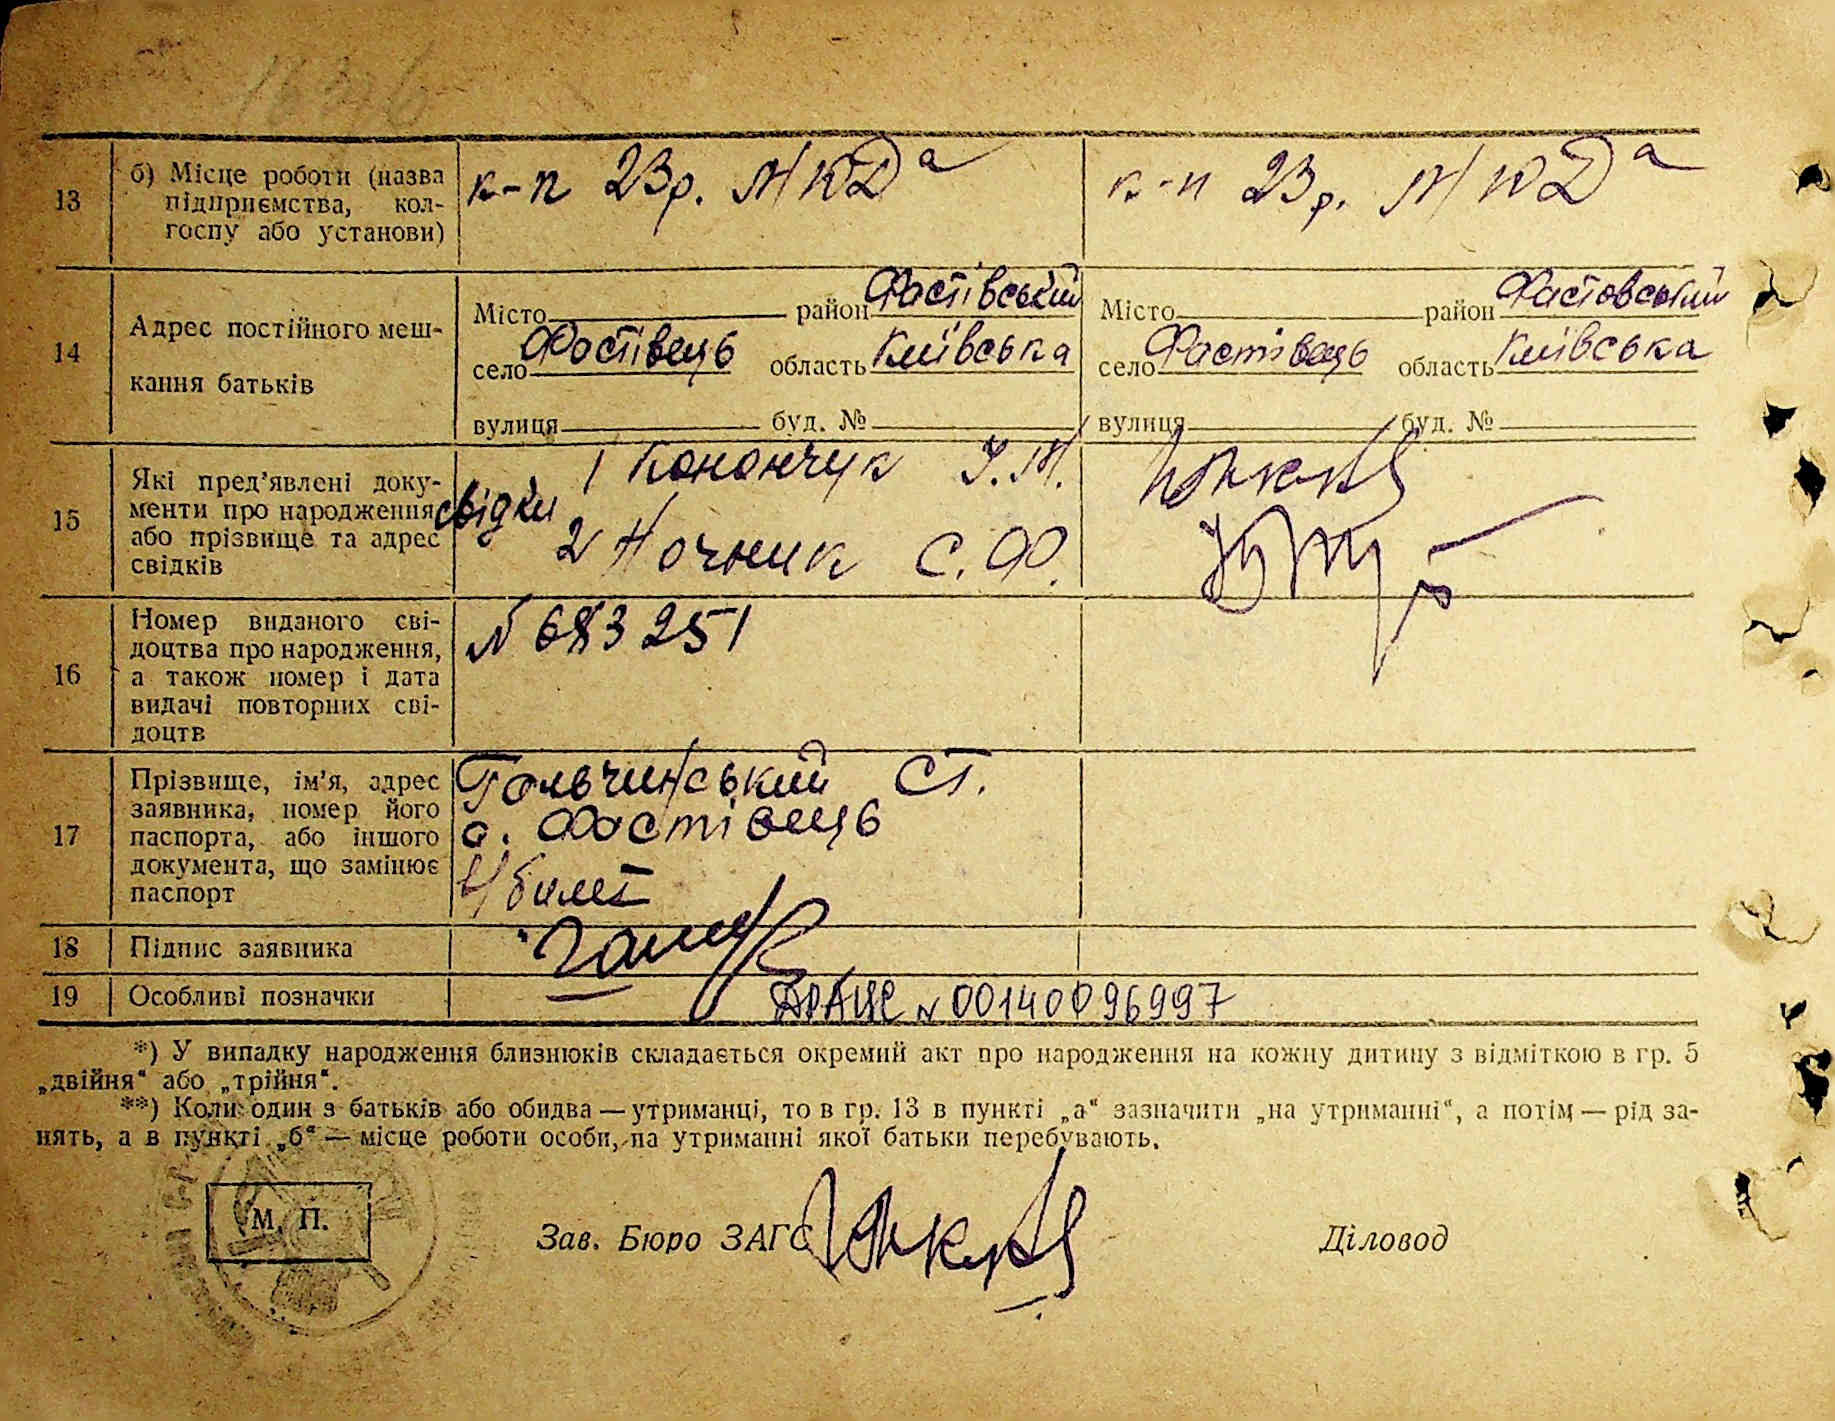 13
б) Місце роботи (назва
підприємства, кол-
госпу або установи)
к-п 23 р. МЮДа
к-п 23 р. МЮДа
14
Адрес постійного меш-
кання батьків
Місто район Фастівський
село Фастівець область Київська
вулиця буд. №
Місто район Фастовський
село Фастівець область Київська
вулиця буд. №
15
Які пред’явлені доку-
менти про народження
або прізвище та адрес
свідків
свідки
1 Конончук У.М.
2 Ночник С.Ф.
16
Номер виданого сві-
доцтва про народження,
а також номер і дата
видачі повторних сві-
доцтв
№ 683251
17
Прізвище, ім’я, адрес
заявника, номер його
паспорта, або іншого
документа, що замінює
паспорт
Гольчинський С.Г.
с. Фастівець
в/билет
18 Підпис заявника
19 Особливі позначки
ДРАЦС № 00140096997
*) У випадку народження близнюків складається окремий акт про народження на кожну дитину з відміткою в гр. 5
„двійня“ або „трійня“.
**) Коли один з батьків або обидва — утриманці, то в гр. 13 в пункті „а“ зазначити „на утриманні“, а потім — рід за-
нять, а в пункті „б“ — місце роботи особи, на утриманні якої батьки перебувають.
М. П.
Зав. Бюро ЗАГС
Діловод